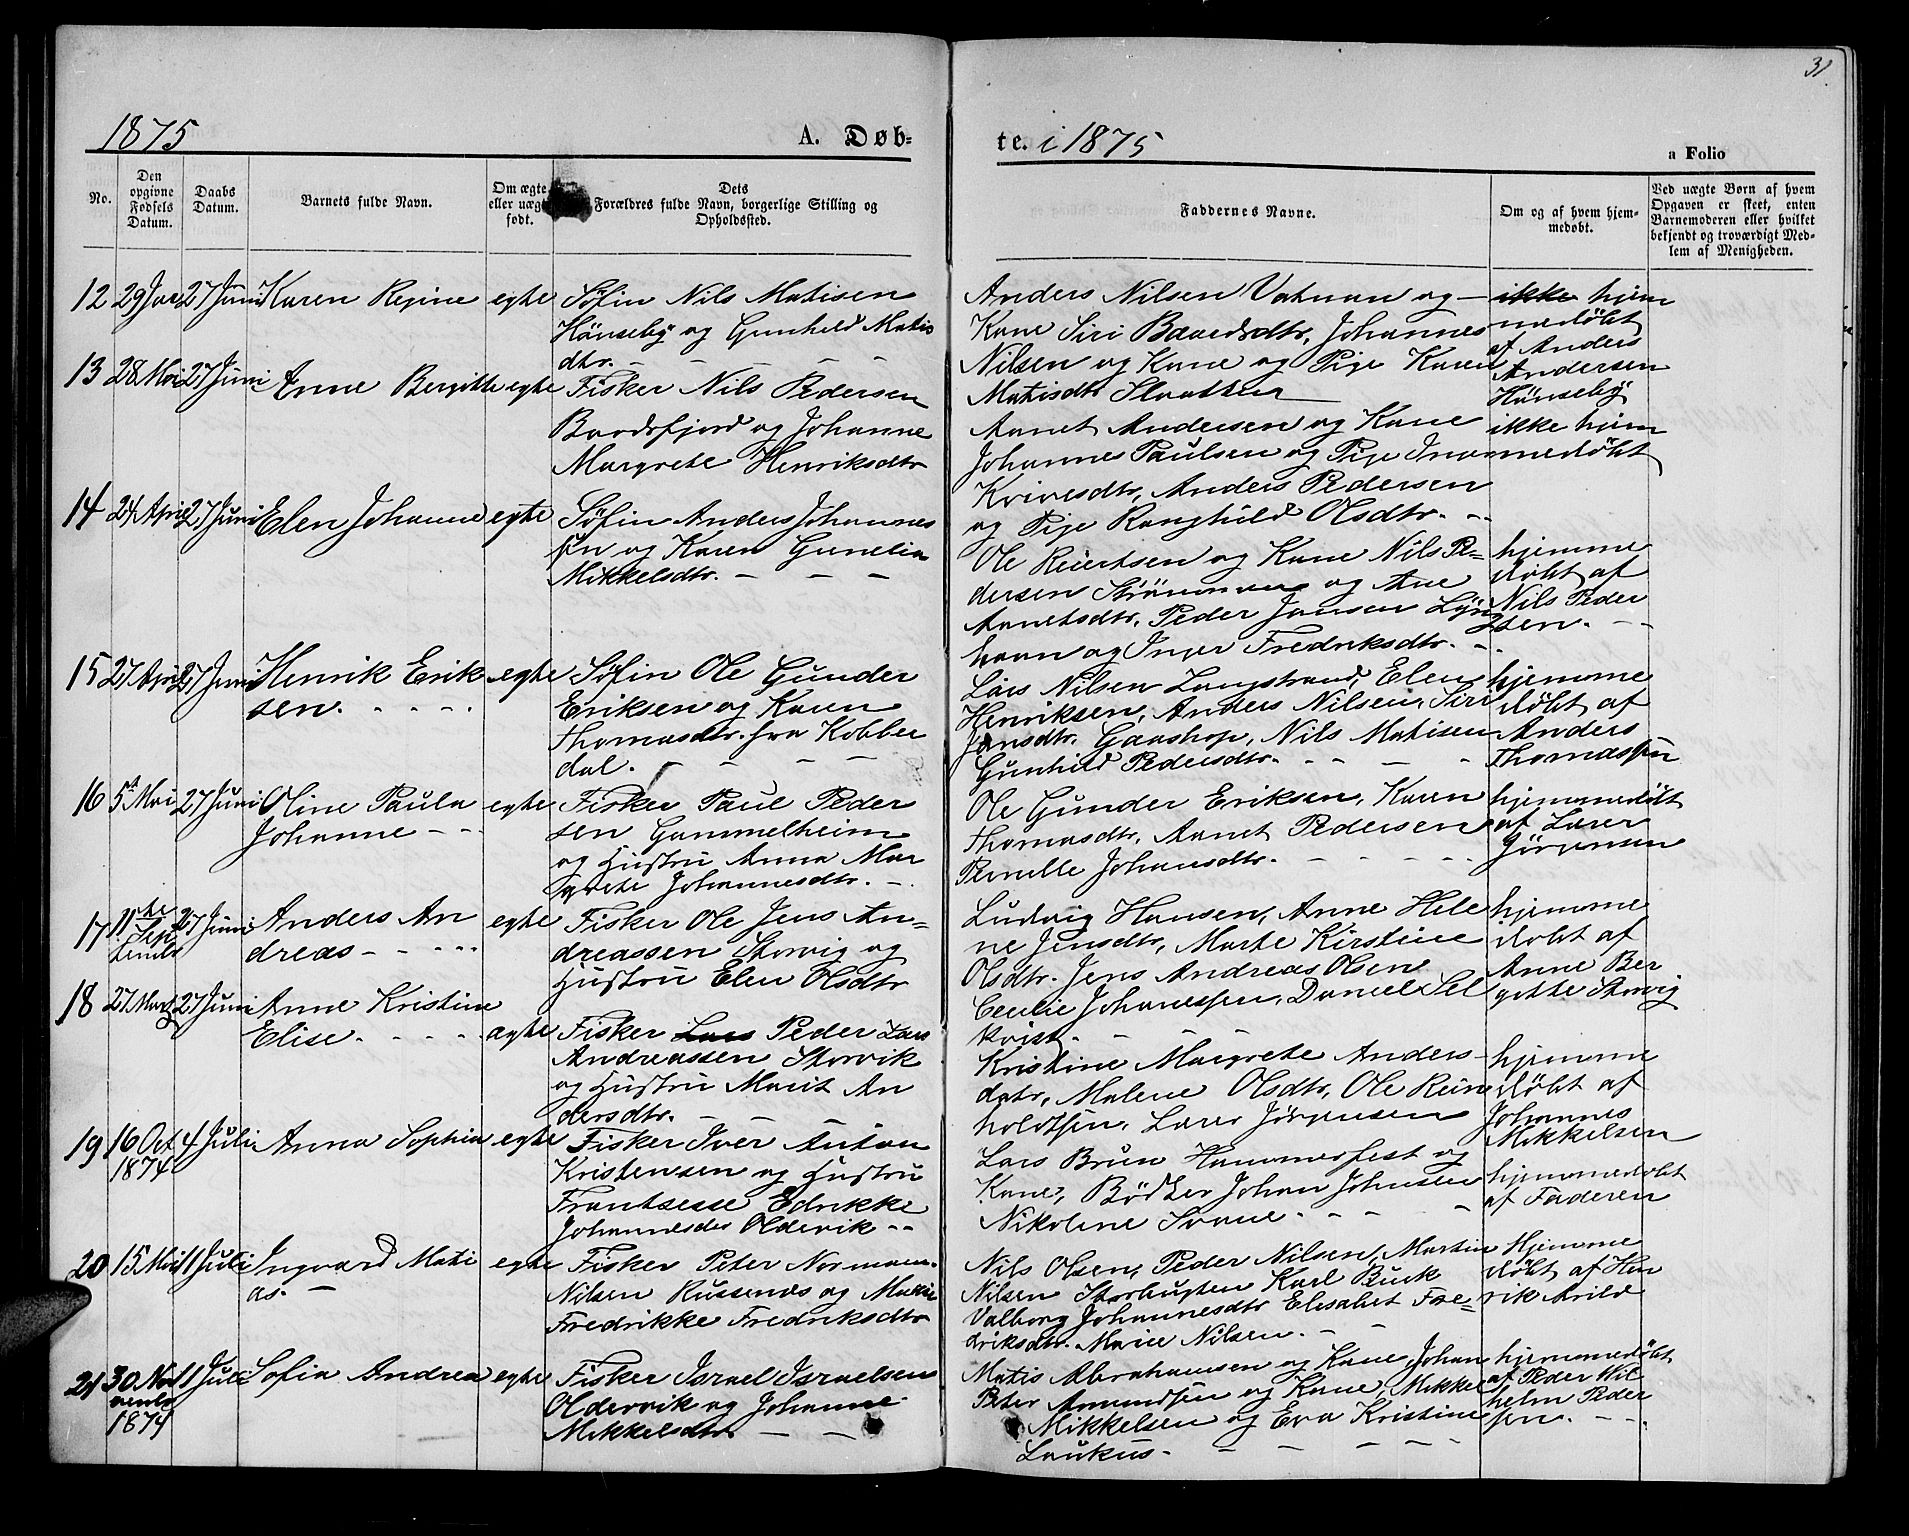 31
1875
A. Døb=
te. i 1875
a Folio
No.
Den opgivne Fødsels Datum.
Daabs Datum.
Barnets fulde Navn.
Om ægte eller uægte født.
Dets Forældres fulde Navn, borgerlige Stilling og Opholdsted.
Faddernes Navne.
Om og af hvem hjem-
medøbt.
Ved uægte Børn af hvem
Opgaven er skeet, enten
Barnemoderen eller hvilket
bekjendt og troværdigt Med-
lem af Menigheden.
12 29 Jan 27 Juni Karen Regine egte Søfin Nils Matisen
Hönseby og Gunhild Matis
dtr. — — —
Anders Nilsen Vatnan og —
Kone Siri Baardsdtr, Johannes
Nilsen og Kone og Pige Karen
Matisdtr Slaatten
ikke hjem
medöbt
af Anders
Andersen
Hönseby
13 28 Mai 27 Juni Anne Bergitte egte Fisker Nils Pedersen
Baardsfjord og Johanne
Margrete Henriksdtr
Aanet Andersen og Kone
Johannes Paulsen og Pige
Anders Pedersen
og Pige Ranghild Olsdtr. --
ikke hjem
medöbt
14 24 April 27 Juni Elen Johanne egte Söfin Anders Johannes
sen og Karen Gunelia
Mikkelsdtr. — — —
Ole Reiertsen og Kone Nils Pe-
dersen Strömmen og Ane
Aanetsdtr, Peder Jansen Lyn
havn og Inger Fredriksdtr. -.
hjemme
döbt af
Nils Peder
sen. --
15 27 April 27 Juni Henrik Erik egte Söfin Ole Gunder
sen. - - - -
Eriksen og Karen
Thomasdtr. fra Kobber
dal. — — — —
Lars Nilsen Langstrand, Elen
Henriksen, Anders Nilsen, Siri
Jansdtr. Gaashop, Nils Matisen
Gunhild Pedersdtr. - - - -
hjemme
döbt af
Anders
Thomassen
16 5t Mai 27 Juni Oline Paula egte Fisker Paul Peder
Johanne - - -
sen Gammelheim
og Hustru Anna Mar
grete Johannesdtr. -.
Ole Gunder Eriksen, Karen
Thomasdtr, Aanet Pedersen
Pernille Johansdtr. - - - - -
hjemmedöbt
af Larer
Jörgensen
17 11te Sep tember 27 Juni Anders An egte Fisker Ole Jens An=
dreas - - - - -
dreassen Storvig og
Hustru Elen Olsdtr
Ludvig Hansen, Anne Hele
ne Jensdtr, Marte Kirstine
Olsdtr. Jens Andreas Olsen
Cecilie Johanessen, Daniel Sel
kvist. -
hjemme
döbt af
Anne Ber
gitte Storvig
18 27 Marts 27 Juni Anne Kristine
Elise. - - - - - egte Fisker Lars Peder Lars
Andreassen Storvik
og Hustru Marit An
dersdtr. - -
Kristine Margrete Anders-
datr, Malene Olsdtr, Ole Rein
holdtsen, Larer Jörgensen
hjemme
döbt af
Johannes
Mikkelsen
19 16 Oct 1874 4 Juli Anna Sophia egte Fisker Iver Anton
Kristensen og Hustru
Frantsesse Edrikke
Johannesdtr Oldervik --
Lars Brun Hammerfest og
Kone, Bödker Johan Johnsen
Nikoline Svane. - - - -
hjemmedöbt
af Faderen
20 15 Mai 11 Juli Ingvard Mati egte Fisker Peter Normann.
as. —
Nilsen Russenes og Marie
Fredrikke Fredriksdtr
Nils Olsen, Peder Nilsen, Martin
Nilsen Storbugten Karl Buck
Valborg Johannesdtr Elisabet Fre=
driksdtr. Marie Nilsen. - -
Hjemme
döbt af Hen
rik Arild
21 30 Novvember 1874 11 Juli Sofia Andrea egte Fisker Israel Israelsen
Oldervik og Johanne
Mikkelsdtr. — —
Matis Abrahamsen og Kone, Johan
Peter Amundsen og Kone, Mikkel
Mikkelsen og Eva Kristine
Laukus. - - - - -
hjemmedöbt
af Peder Wil
helm Peder
sen. - - -